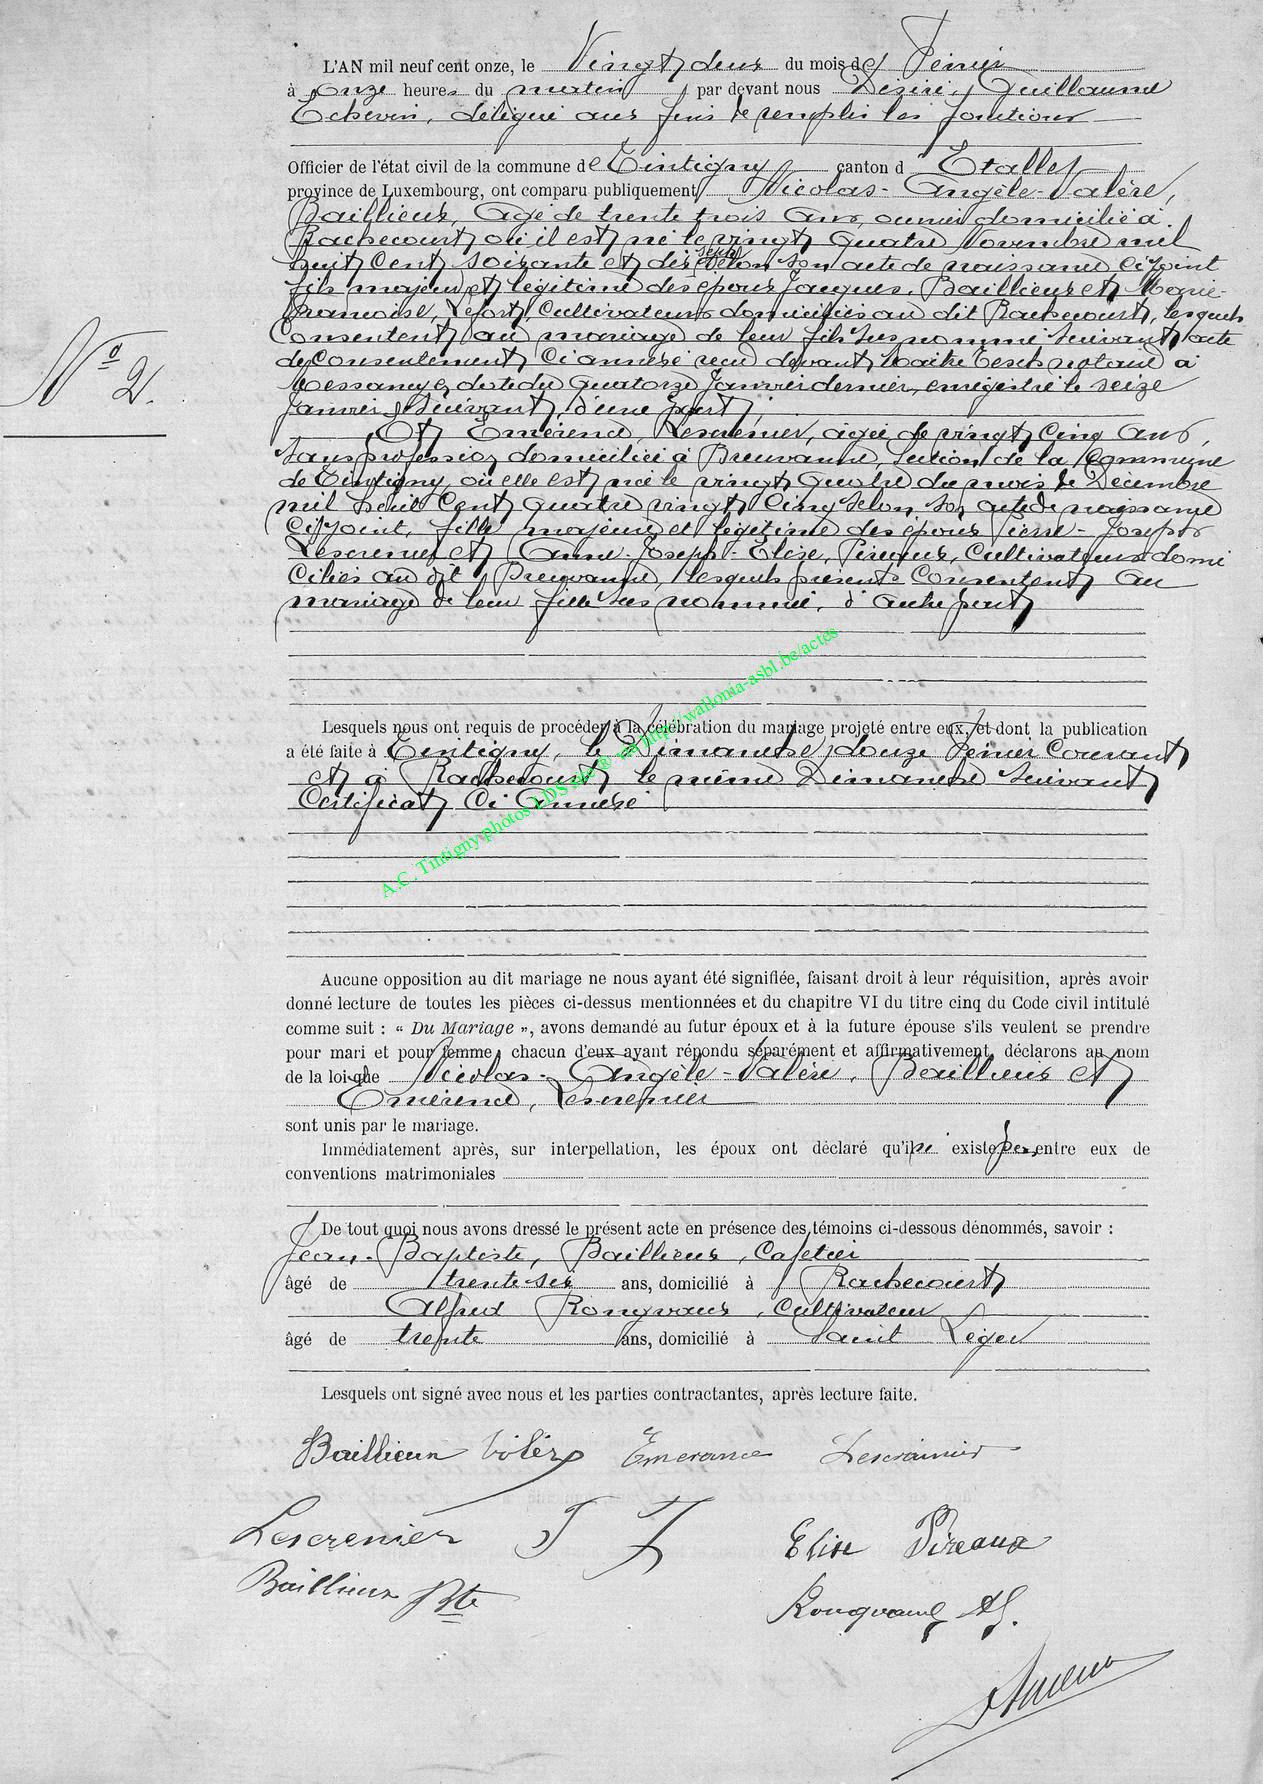 L'AN mil neuf cent onze, le Vingt deux du mois de Février
à onze heures du matin par devant nous Désiré, Guillaume
Echevin, délégué aux fins de remplir les fonctions
Officier de l'état civil de la commune de Tintigny canton d'Etalle
province de Luxembourg, ont comparu publiquement Nicolas-Angèle-Valère,
Baillieux, agé de trente trois ans, ouvrier domicilié à
Rachecourt où il est né le vingt quatre Novembre mil
huit cent soixante et dix sept selon son acte de naissance ci joint
fils majeur et légitime des époux Jacques, Baillieux et Marie-
Françoise, Lefort, Cultivateurs domiciliés au dit Rachecourt, lesquels
Consentent au mariage de leur fils susnommé suivant acte
de Consentement ci annexé reçu devant Maître Tesch notaire à
Messancy, daté du quatorze Janvier dernier, enregistré le seize
Janvier suivant, d'une part;
Et Emérence, Lescrenier, agée de vingt cinq ans,
sans profession domiciliée à Breuvanne, Section de la Commune
de Tintigny, où elle est née le vingt quatre du mois de Décembre
mil huit cent quatre vingt cinq selon son acte de naissance
ci joint, fille majeure et légitime des époux Pierre-Joseph
Lescrenier et Anne-Joseph-Elise, Pireaux, Cultivateurs domi
ciliés au dit Breuvanne, lesquels présents Consentent au
mariage de leur fille sus nommée, d'autre part
Lesquels nous ont requis de procéder à la célébration du mariage projeté entre eux, et dont la publication
a été faite à Tintigny, le Dimanche douze Février Courant
et à Rachecourt le même Dimanche suivant
Certificat Ci Annexé
A.C. Tintigny photos LDS site ® via http://wallonia-asbl.be/actes
N° 2.
Aucune opposition au dit mariage ne nous ayant été signifiée, faisant droit à leur réquisition, après avoir
donné lecture de toutes les pièces ci-dessus mentionnées et du chapitre VI du titre cinq du Code civil intitulé
comme suit : « Du Mariage », avons demandé au futur époux et à la future épouse s'ils veulent se prendre
pour mari et pour femme, chacun d'eux ayant répondu séparément et affirmativement, déclarons au nom
de la loi que Nicolas-Angèle-Valère, Baillieux et
Emérence, Lescrenier
sont unis par le mariage.
Immédiatement après, sur interpellation, les époux ont déclaré qu'il n'existe pas entre eux de
conventions matrimoniales
De tout quoi nous avons dressé le présent acte en présence des témoins ci-dessous dénommés, savoir :
Jean-Baptiste, Baillieux, Cafetier
âgé de trente six ans, domicilié à Rachecourt
Alfred Rongvaux, Cultivateur
âgé de trente ans, domicilié à Saint Léger
Lesquels ont signé avec nous et les parties contractantes, après lecture faite.
Baillieux Valère Emerance Lescrainier
Lescrenier J Elise Pireaux
Baillieux Bte Rongvaux Af.